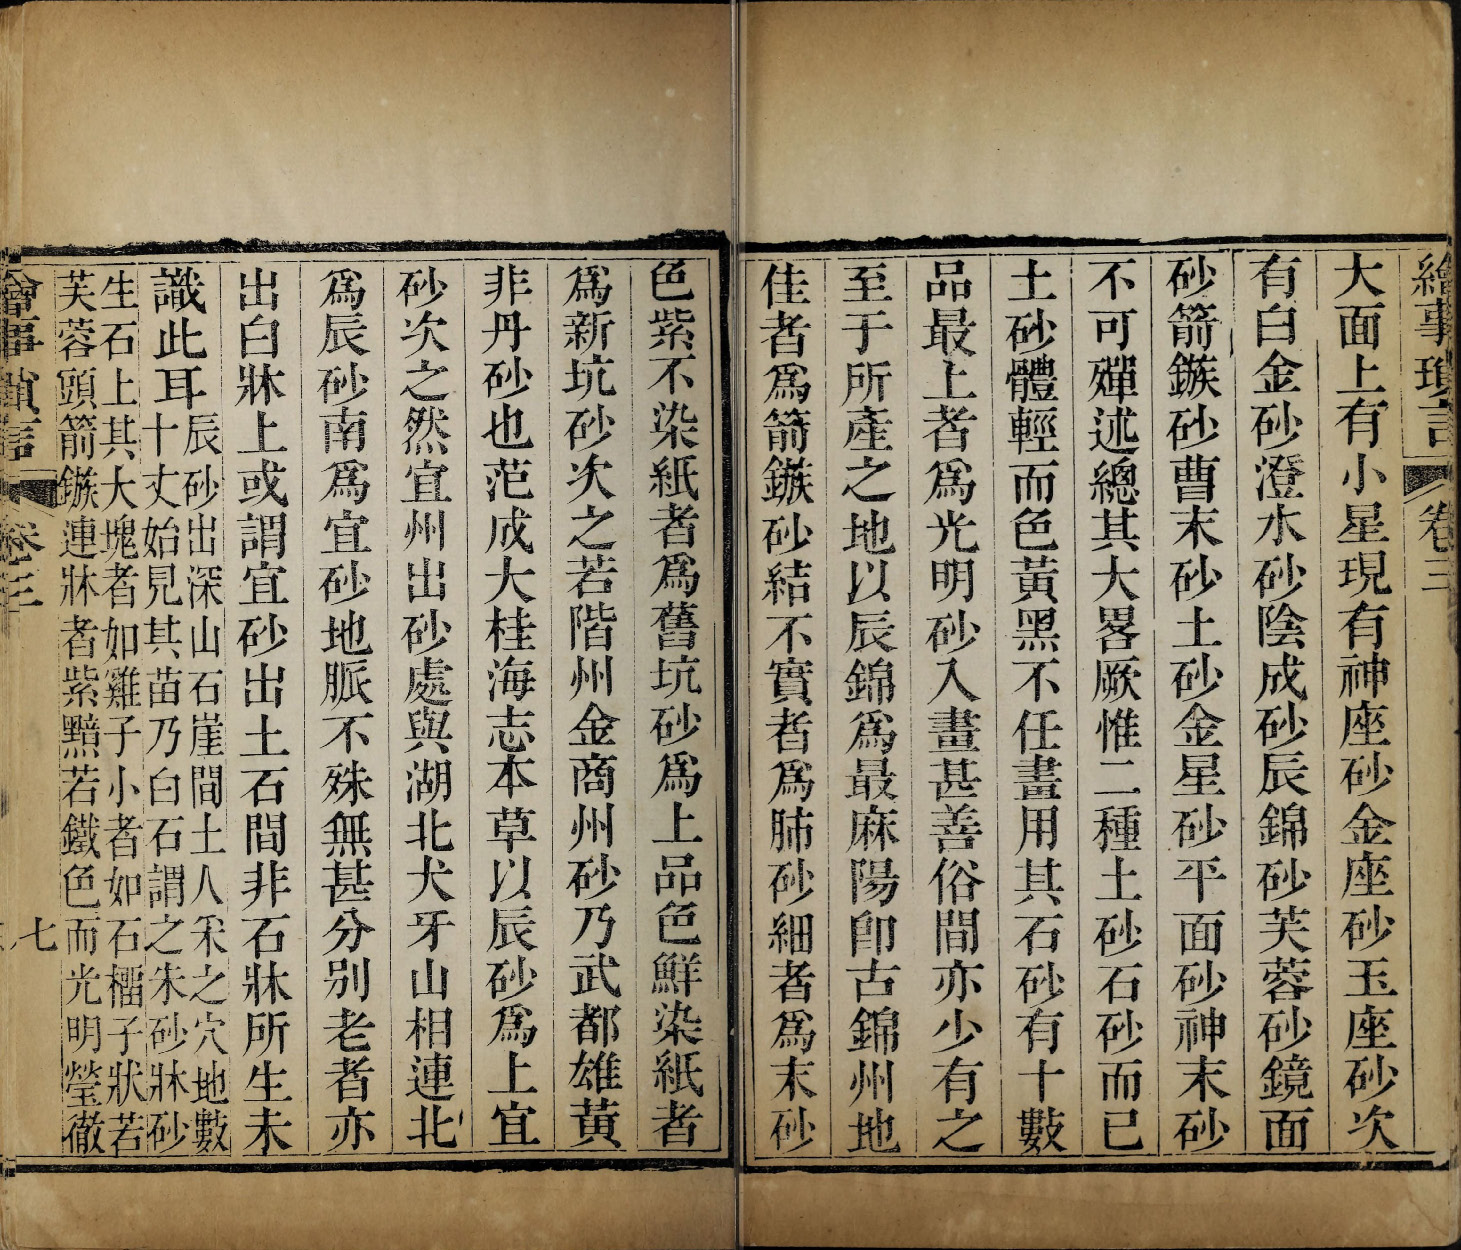 繪事瑣言 卷三
大面上有小星現有神座砂金座砂玉座砂次
有白金砂澄水砂陰成砂辰錦砂芙蓉砂鏡面
砂箭鏃砂曹末砂土砂金星砂平面砂神末砂
不可殫述總其大畧厥惟二種土砂石砂而已
土砂體輕而色黃黑不任畫用其石砂有十數
品最上者爲光明砂入畫甚善俗間亦少有之
至于所產之地以辰錦爲最麻陽卽古錦州地
佳者爲箭鏃砂結不實者爲肺砂細者爲末砂
色紫不染紙者爲舊坑砂爲上品色鮮染紙者
爲新坑砂次之若階州金商州砂乃武都雄黃
非丹砂也范成大桂海志本草以辰砂爲上宜
砂次之然宜州出砂處與湖北犬牙山相連北
爲辰砂南爲宜砂地脈不殊無甚分别老者亦
出白牀上或謂宜砂出土石間非石牀所生未
識此耳
辰砂出深山石崖間土人采之穴地數
十丈始見其苗乃白石謂之朱砂牀砂
生石上其大塊者如雞子小者如石榴子狀若
芙蓉頭箭鏃連牀者紫黯若鐵色而光明瑩徹
繪事瑣言 卷三 七